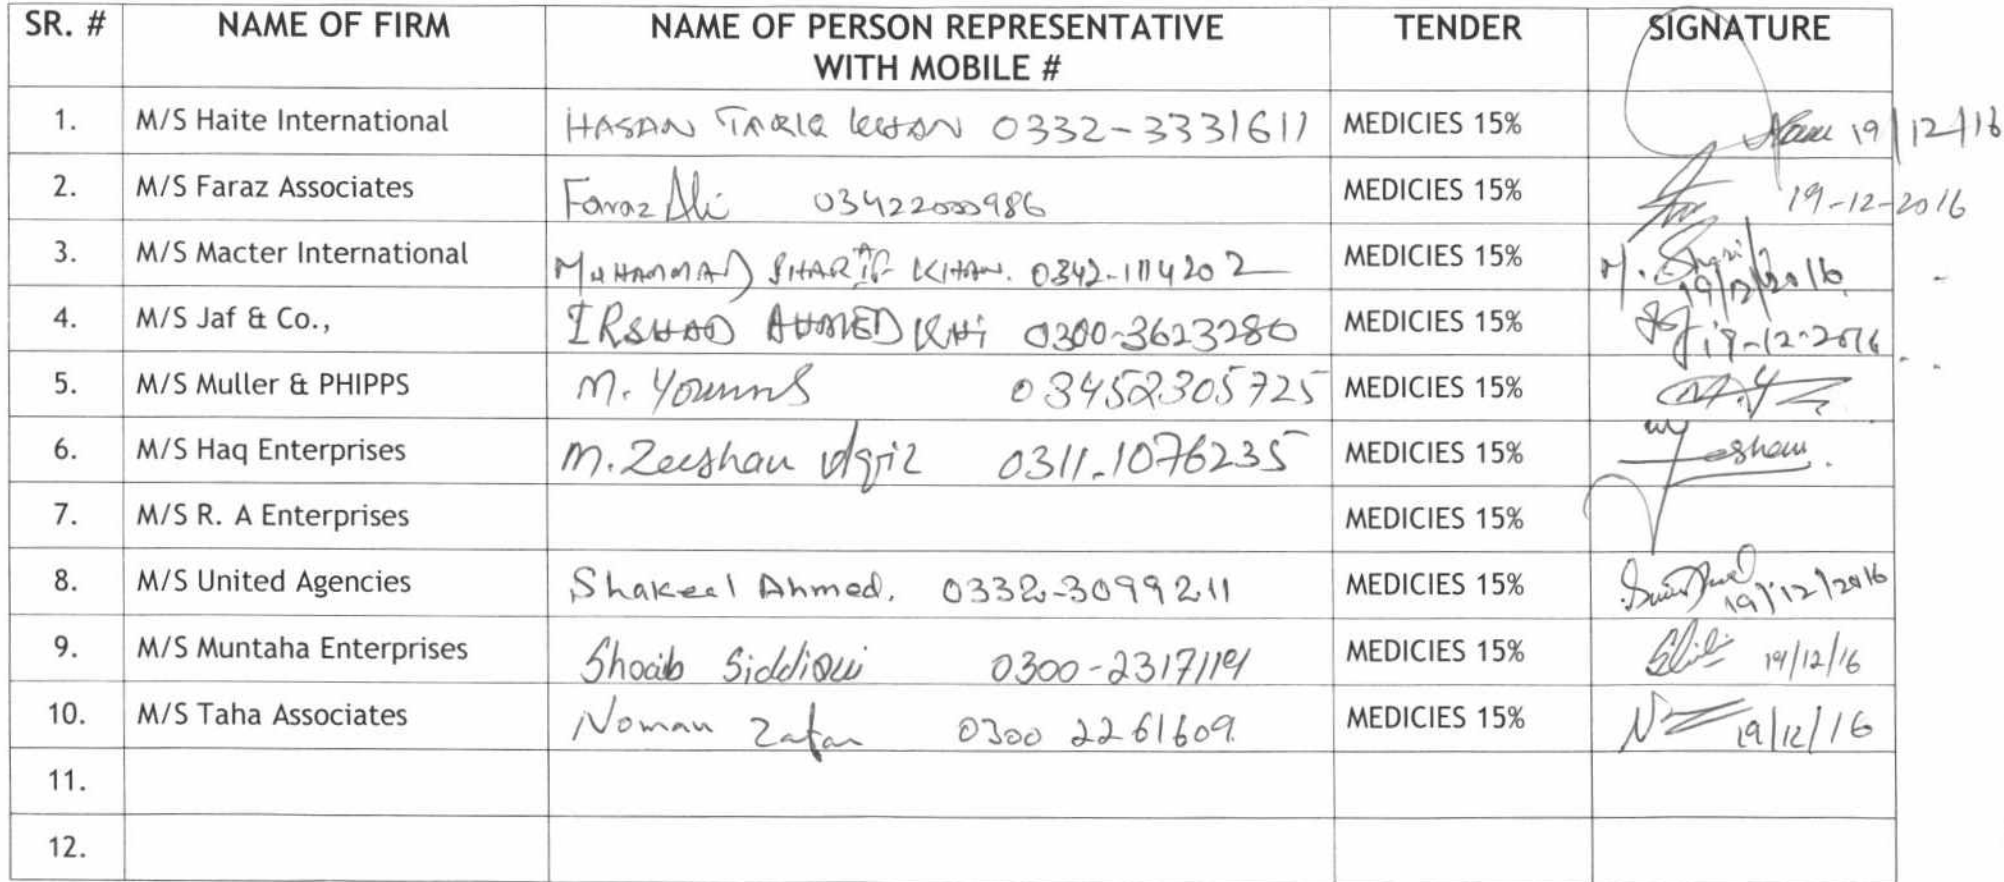 SR. # NAME OF FIRM NAME OF PERSON REPRESENTATIVE WITH MOBILE # TENDER SIGNATURE
1. M/S Haite International HASAN TARIQ KHAN 0332-3331611 MEDICIES 15% 19/12/16
2. M/S Faraz Associates Faraz Ali 03422000986 MEDICIES 15% 19-12-2016
3. M/S Macter International MUHAMMAD SHARIF KHAN. 0342-1114202 MEDICIES 15% M. Sharif 19/12/2016
4. M/S Jaf & Co., IRSHAD AHMED KHI 0300-3623280 MEDICIES 15% 19-12-2016
5. M/S Muller & PHIPPS M. Younus 03452305725 MEDICIES 15%
6. M/S Haq Enterprises M. Zeeshan 0311-1076235 MEDICIES 15%
7. M/S R. A Enterprises MEDICIES 15%
8. M/S United Agencies Shakeel Ahmed. 0332-3099211 MEDICIES 15% 19/12/2016
9. M/S Muntaha Enterprises Shoaib Siddiqui MEDICIES 15% 19/12/16
10. M/S Taha Associates Noman Zafar 0300 2261609 MEDICIES 15% 19/12/16
11.
12.